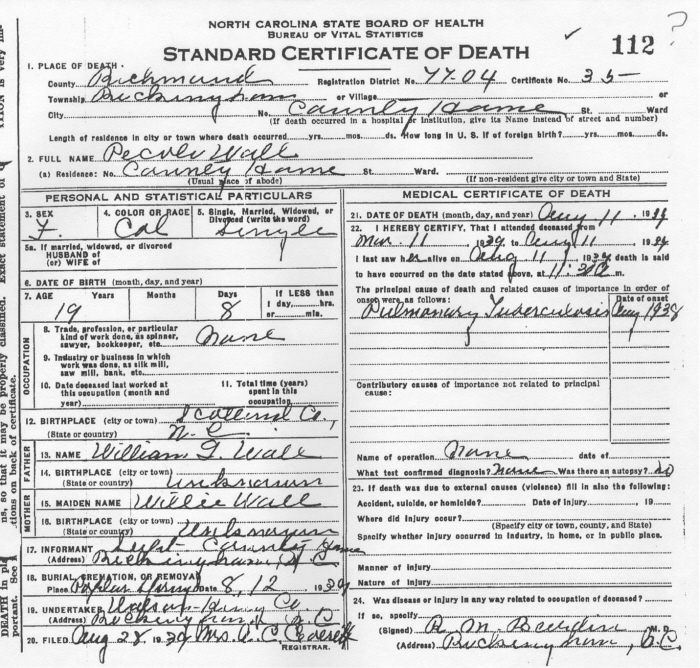 NORTH CAROLINA STATE BOARD OF HEALTH
BUREAU OF VITAL STATISTICS
STANDARD CERTIFICATE OF DEATH
✓ 112 ?
1. PLACE OF DEATH
County Richmond Registration District No. 77-04 Certificate No. 35-
Township Rockingham or Village or
City No. County Home St. Ward
(If death occurred in a hospital or institution, give its Name instead of street and number)
Length of residence in city or town where death occurred yrs. mos. ds. How long in U. S. if of foreign birth? yrs. mos. ds.
2. FULL NAME Wall
(a) Residence: No. County Home St. Ward.
(Usual place of abode) (If non-resident give city or town and State)
PERSONAL AND STATISTICAL PARTICULARS
3. SEX F. 4. COLOR OR RACE Col 5. Single, Married, Widowed, or Divorced (write the word) Single
5a. If married, widowed, or divorced
HUSBAND of
(or) WIFE of
6. DATE OF BIRTH (month, day, and year)
7. AGE 19 Years Months Days 8 If LESS than
1 day, hrs.
or min.
OCCUPATION
8. Trade, profession, or particular
kind of work done, as spinner,
sawyer, bookkeeper, etc. None
9. Industry or business in which
work was done, as silk mill,
saw mill, bank, etc.
10. Date deceased last worked at
this occupation (month and
year)
11. Total time (years)
spent in this
occupation
12. BIRTHPLACE (city or town) Scotland Co.,
(State or country) N. C.
FATHER
13. NAME William T. Wall
14. BIRTHPLACE (city or town)
(State or country) Unknown
MOTHER
15. MAIDEN NAME Willie Wall
16. BIRTHPLACE (city or town)
(State or country) Unknown
17. INFORMANT Supt. County Home
(Address) Rockingham, N C
18. BURIAL, CREMATION, OR REMOVAL
Place Poplar Springs Date 8, 12 1939
19. UNDERTAKER Watson-King Co.
(Address) Rockingham, N. C.
20. FILED Aug 28 1939 Mrs. A. C.
REGISTRAR.
MEDICAL CERTIFICATE OF DEATH
21. DATE OF DEATH (month, day, and year) Aug 11, 1939
22. I HEREBY CERTIFY, That I attended deceased from
Mar. 11 1939 to Aug 11 1939
I last saw her alive on Aug 11, 1939 death is said
to have occurred on the date stated above, at 11:30 m.
The principal cause of death and related causes of importance in order of
onset were as follows: Date of onset
Pulmonary Tuberculosis Aug 1938
Contributory causes of importance not related to principal
cause:
Name of operation None date of
What test confirmed diagnosis? None Was there an autopsy? No
23. If death was due to external causes (violence) fill in also the following:
Accident, suicide, or homicide? Date of injury , 19
Where did injury occur?
(Specify city or town, county, and State)
Specify whether injury occurred in industry, in home, or in public place.
Manner of injury
Nature of injury
24. Was disease or injury in any way related to occupation of deceased?
If so, specify
(Signed) M. D.
(Address) Rockingham, N.C.